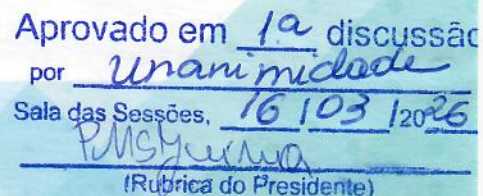 Aprovado em 1ª discussão
por unanimidade
Sala das Sessões, 16 / 03 / 2026
(Rubrica do Presidente)